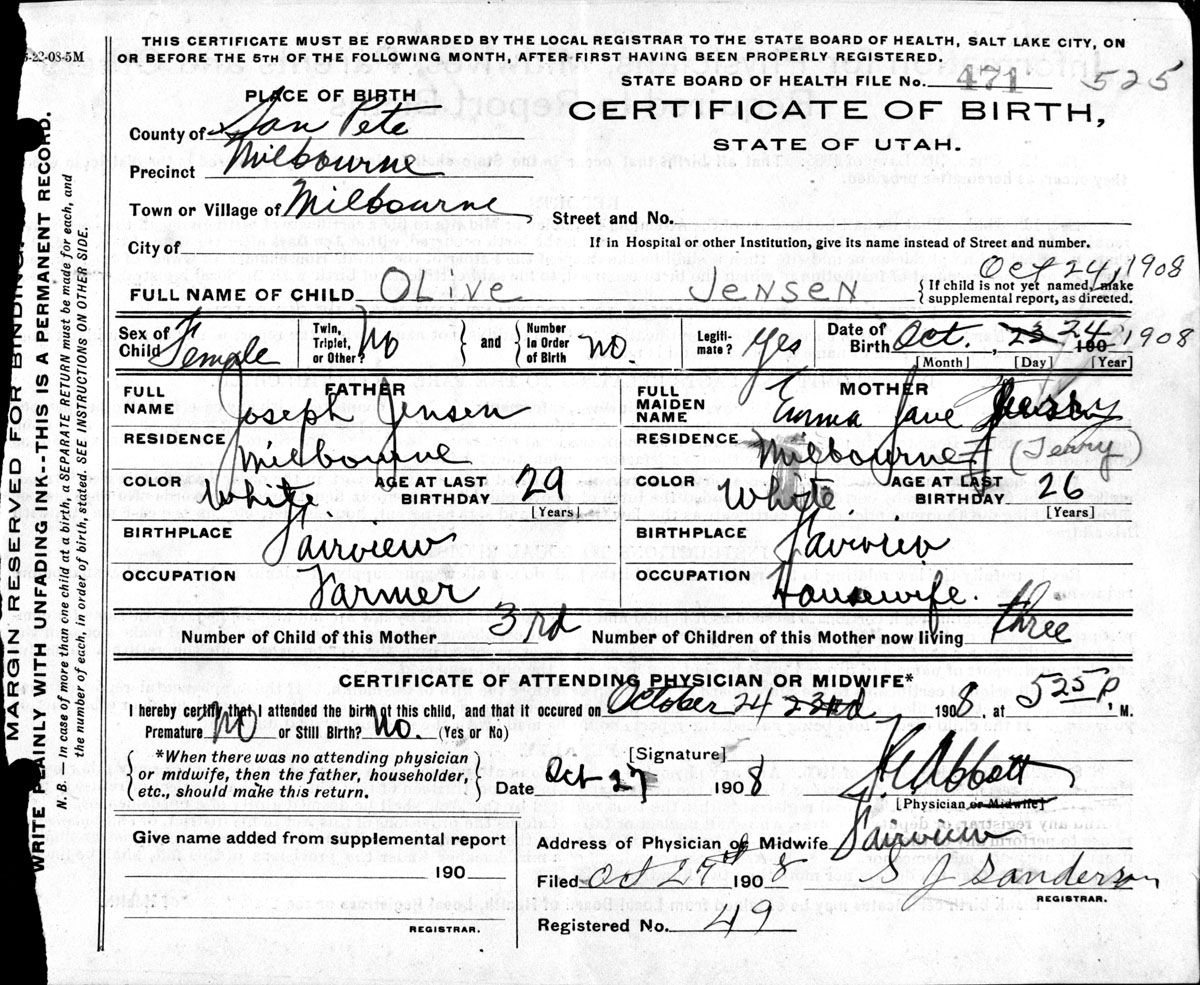 5-22-08-5M
THIS CERTIFICATE MUST BE FORWARDED BY THE LOCAL REGISTRAR TO THE STATE BOARD OF HEALTH, SALT LAKE CITY, ON
OR BEFORE THE 5TH OF THE FOLLOWING MONTH, AFTER FIRST HAVING BEEN PROPERLY REGISTERED.
STATE BOARD OF HEALTH FILE No. 471 525
PLACE OF BIRTH
CERTIFICATE OF BIRTH,
STATE OF UTAH.
County of San Pete
Precinct Milbourne
Town or Village of Milbourne Street and No.
City of If in Hospital or other Institution, give its name instead of Street and number.
Oct 24, 1908
FULL NAME OF CHILD OLive JENSEN { If child is not yet named, make
supplemental report, as directed.
Sex of Child Female Twin, Triplet, or Other? No } and { Number in Order of Birth no. Legiti- mate? Yes Date of Birth Oct. , 23 24 190 1908
[Month] [Day] [Year]
FATHER MOTHER
FULL NAME Joseph Jensen FULL MAIDEN NAME Emma Jane
RESIDENCE Milbourne RESIDENCE Milbourne (Terry)
COLOR White. AGE AT LAST BIRTHDAY 29 COLOR Whyte. AGE AT LAST BIRTHDAY 26
[Years] [Years]
BIRTHPLACE Fairview BIRTHPLACE Fairview
OCCUPATION Farmer OCCUPATION Housewife.
Number of Child of this Mother 3rd Number of Children of this Mother now living three
CERTIFICATE OF ATTENDING PHYSICIAN OR MIDWIFE*
I hereby certify that I attended the birth of this child, and that it occured on October 24 23rd 1908, at 525 P, M.
Premature No or Still Birth? No. (Yes or No)
{ *When there was no attending physician
or midwife, then the father, householder,
etc., should make this return. }
[Signature]
Date Oct 27 1908 Abbott
[Physician or Midwife]
Give name added from supplemental report
190
REGISTRAR.
Address of Physician of Midwife Fairview
Filed Oct 27th 1908 S J Sanderson
REGISTRAR.
Registered No. 49
MARGIN RESERVED FOR BINDING.
WRITE PLAINLY WITH UNFADING INK--THIS IS A PERMANENT RECORD.
N. B. - In case of more than one child at a birth, a SEPARATE RETURN must be made for each, and
the number of each, in order of birth, stated. SEE INSTRUCTIONS ON OTHER SIDE.